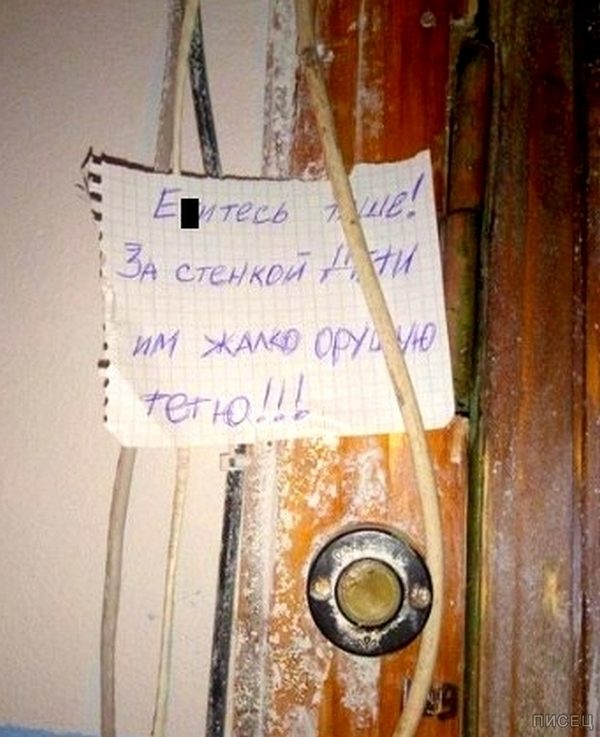 Е█итесь тише!
За стенкой дети
им жалко орущую
тетю!!!
писец